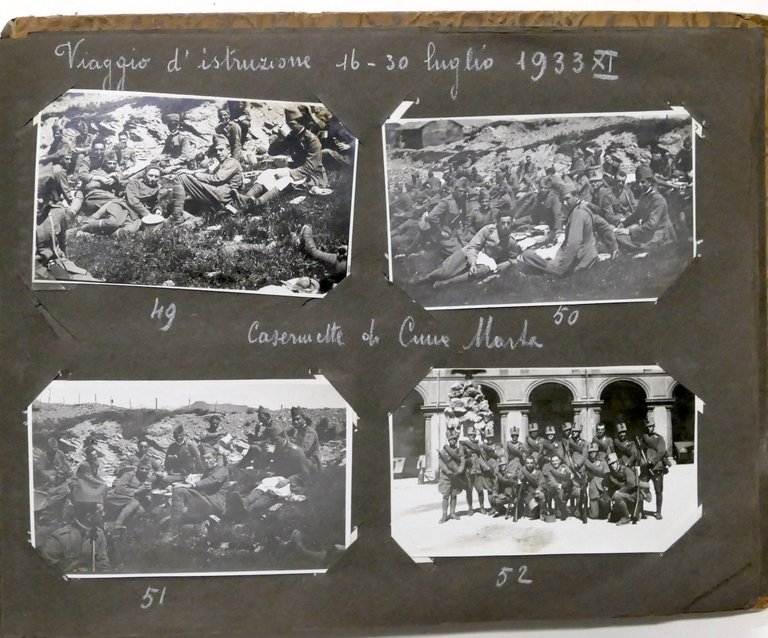 Viaggio d'istruzione 16-30 luglio 1933 XI
49
50
Casermette di Cima Marta
51
52